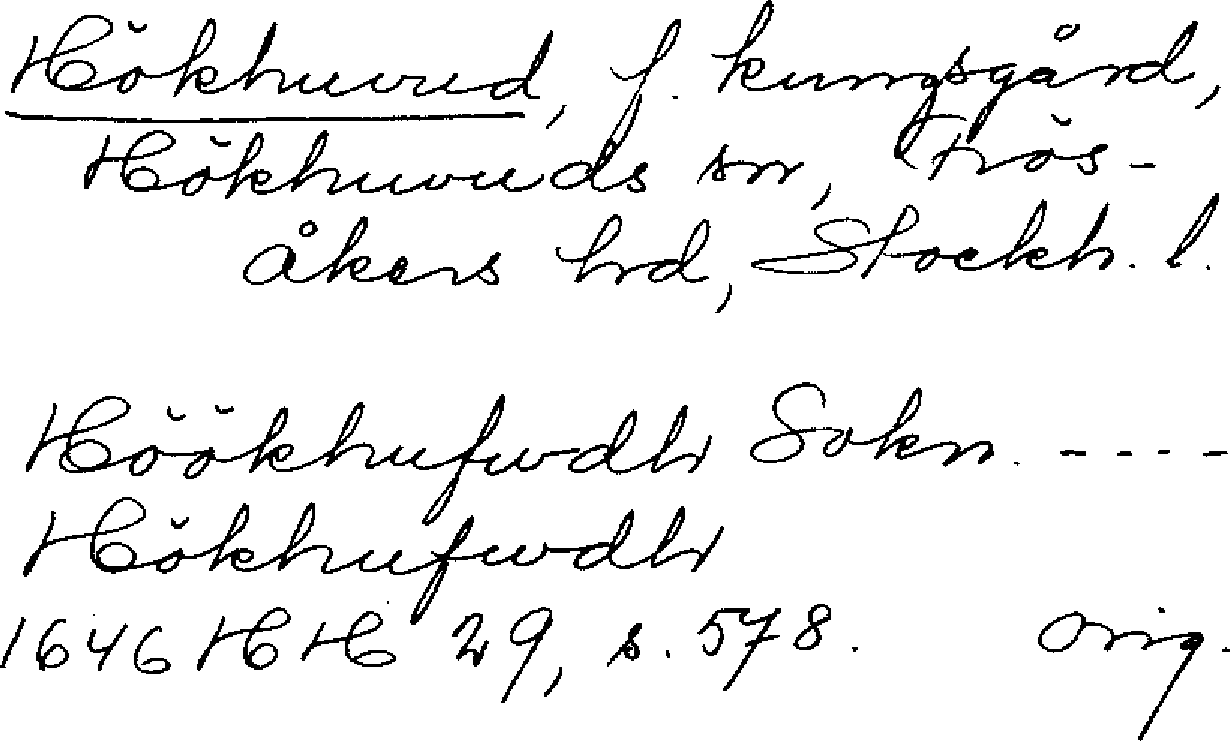 Hökhuvud, f. kungsgård,
Hökhuvuds sn, Frös-
åkers hrd, Stockh. l.
Höökhufwdh Sokn. ----
Hökhufwdh
1646 HH 29, s. 578. Orig.